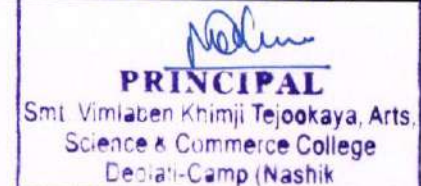 PRINCIPAL
Smt. Vimlaben Khimji Tejookaya, Arts,
Science & Commerce College
Deolali-Camp (Nashik